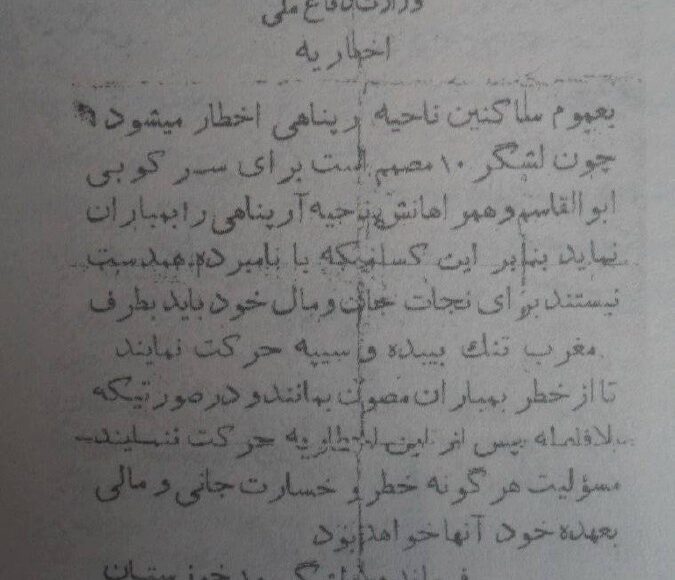 وزارت دفاع ملی
اخطاریه
بعموم ساکنین ناحیه رپناهی اخطار میشود
چون لشگر ۱۰ مصمم است برای سر کوبی
ابوالقاسم و همراهانش ناحیه آرپناهی را بمباران
نماید بنابر این کسانیکه با نامبرده همدست
نیستند برای نجات جان و مال خود باید بطرف
مغرب تنك بیبده و سیپه حرکت نمایند
تا از خطر بمباران مصون بمانند و در صورتیکه
بلافاصله پس از این اخطاریه حرکت ننمایند
مسؤلیت هر گونه خطر و خسارت جانی و مالی
بعهده خود آنها خواهد بود
فرمانده لشگر خوزستان